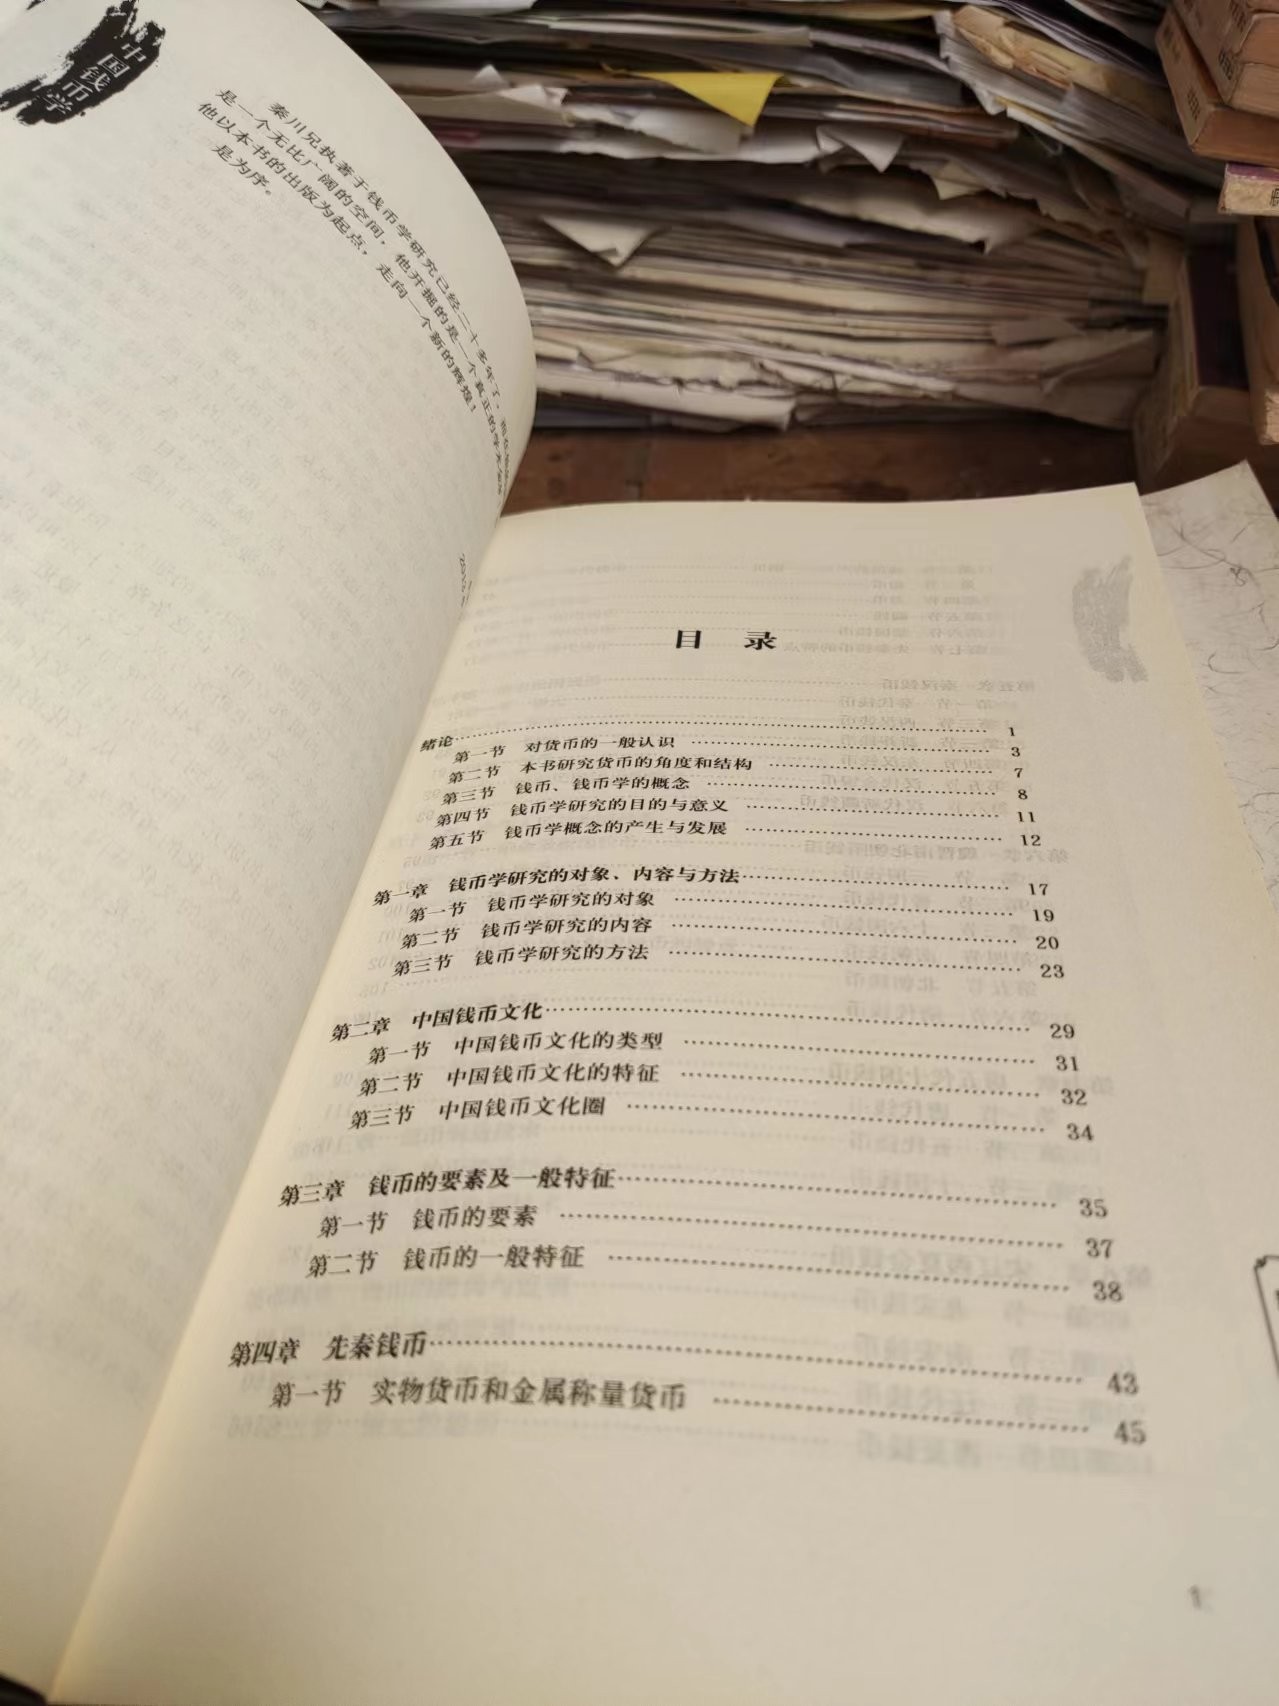 中国钱币学
秦川兄执著于钱币学研究已经二十多年了，
是一个无比广阔的空间，他开掘的是一个真正的学术
他以本书的出版为起点，走向一个新的辉煌！
是为序。
目 录
绪论 1
第一节 对货币的一般认识 3
第二节 本书研究货币的角度和结构 7
第三节 钱币、钱币学的概念 8
第四节 钱币学研究的目的与意义 11
第五节 钱币学概念的产生与发展 12
第一章 钱币学研究的对象、内容与方法 17
第一节 钱币学研究的对象 19
第二节 钱币学研究的内容 20
第三节 钱币学研究的方法 23
第二章 中国钱币文化 29
第一节 中国钱币文化的类型 31
第二节 中国钱币文化的特征 32
第三节 中国钱币文化圈 34
第三章 钱币的要素及一般特征 35
第一节 钱币的要素 37
第二节 钱币的一般特征 38
第四章 先秦钱币 43
第一节 实物货币和金属称量货币 45
1